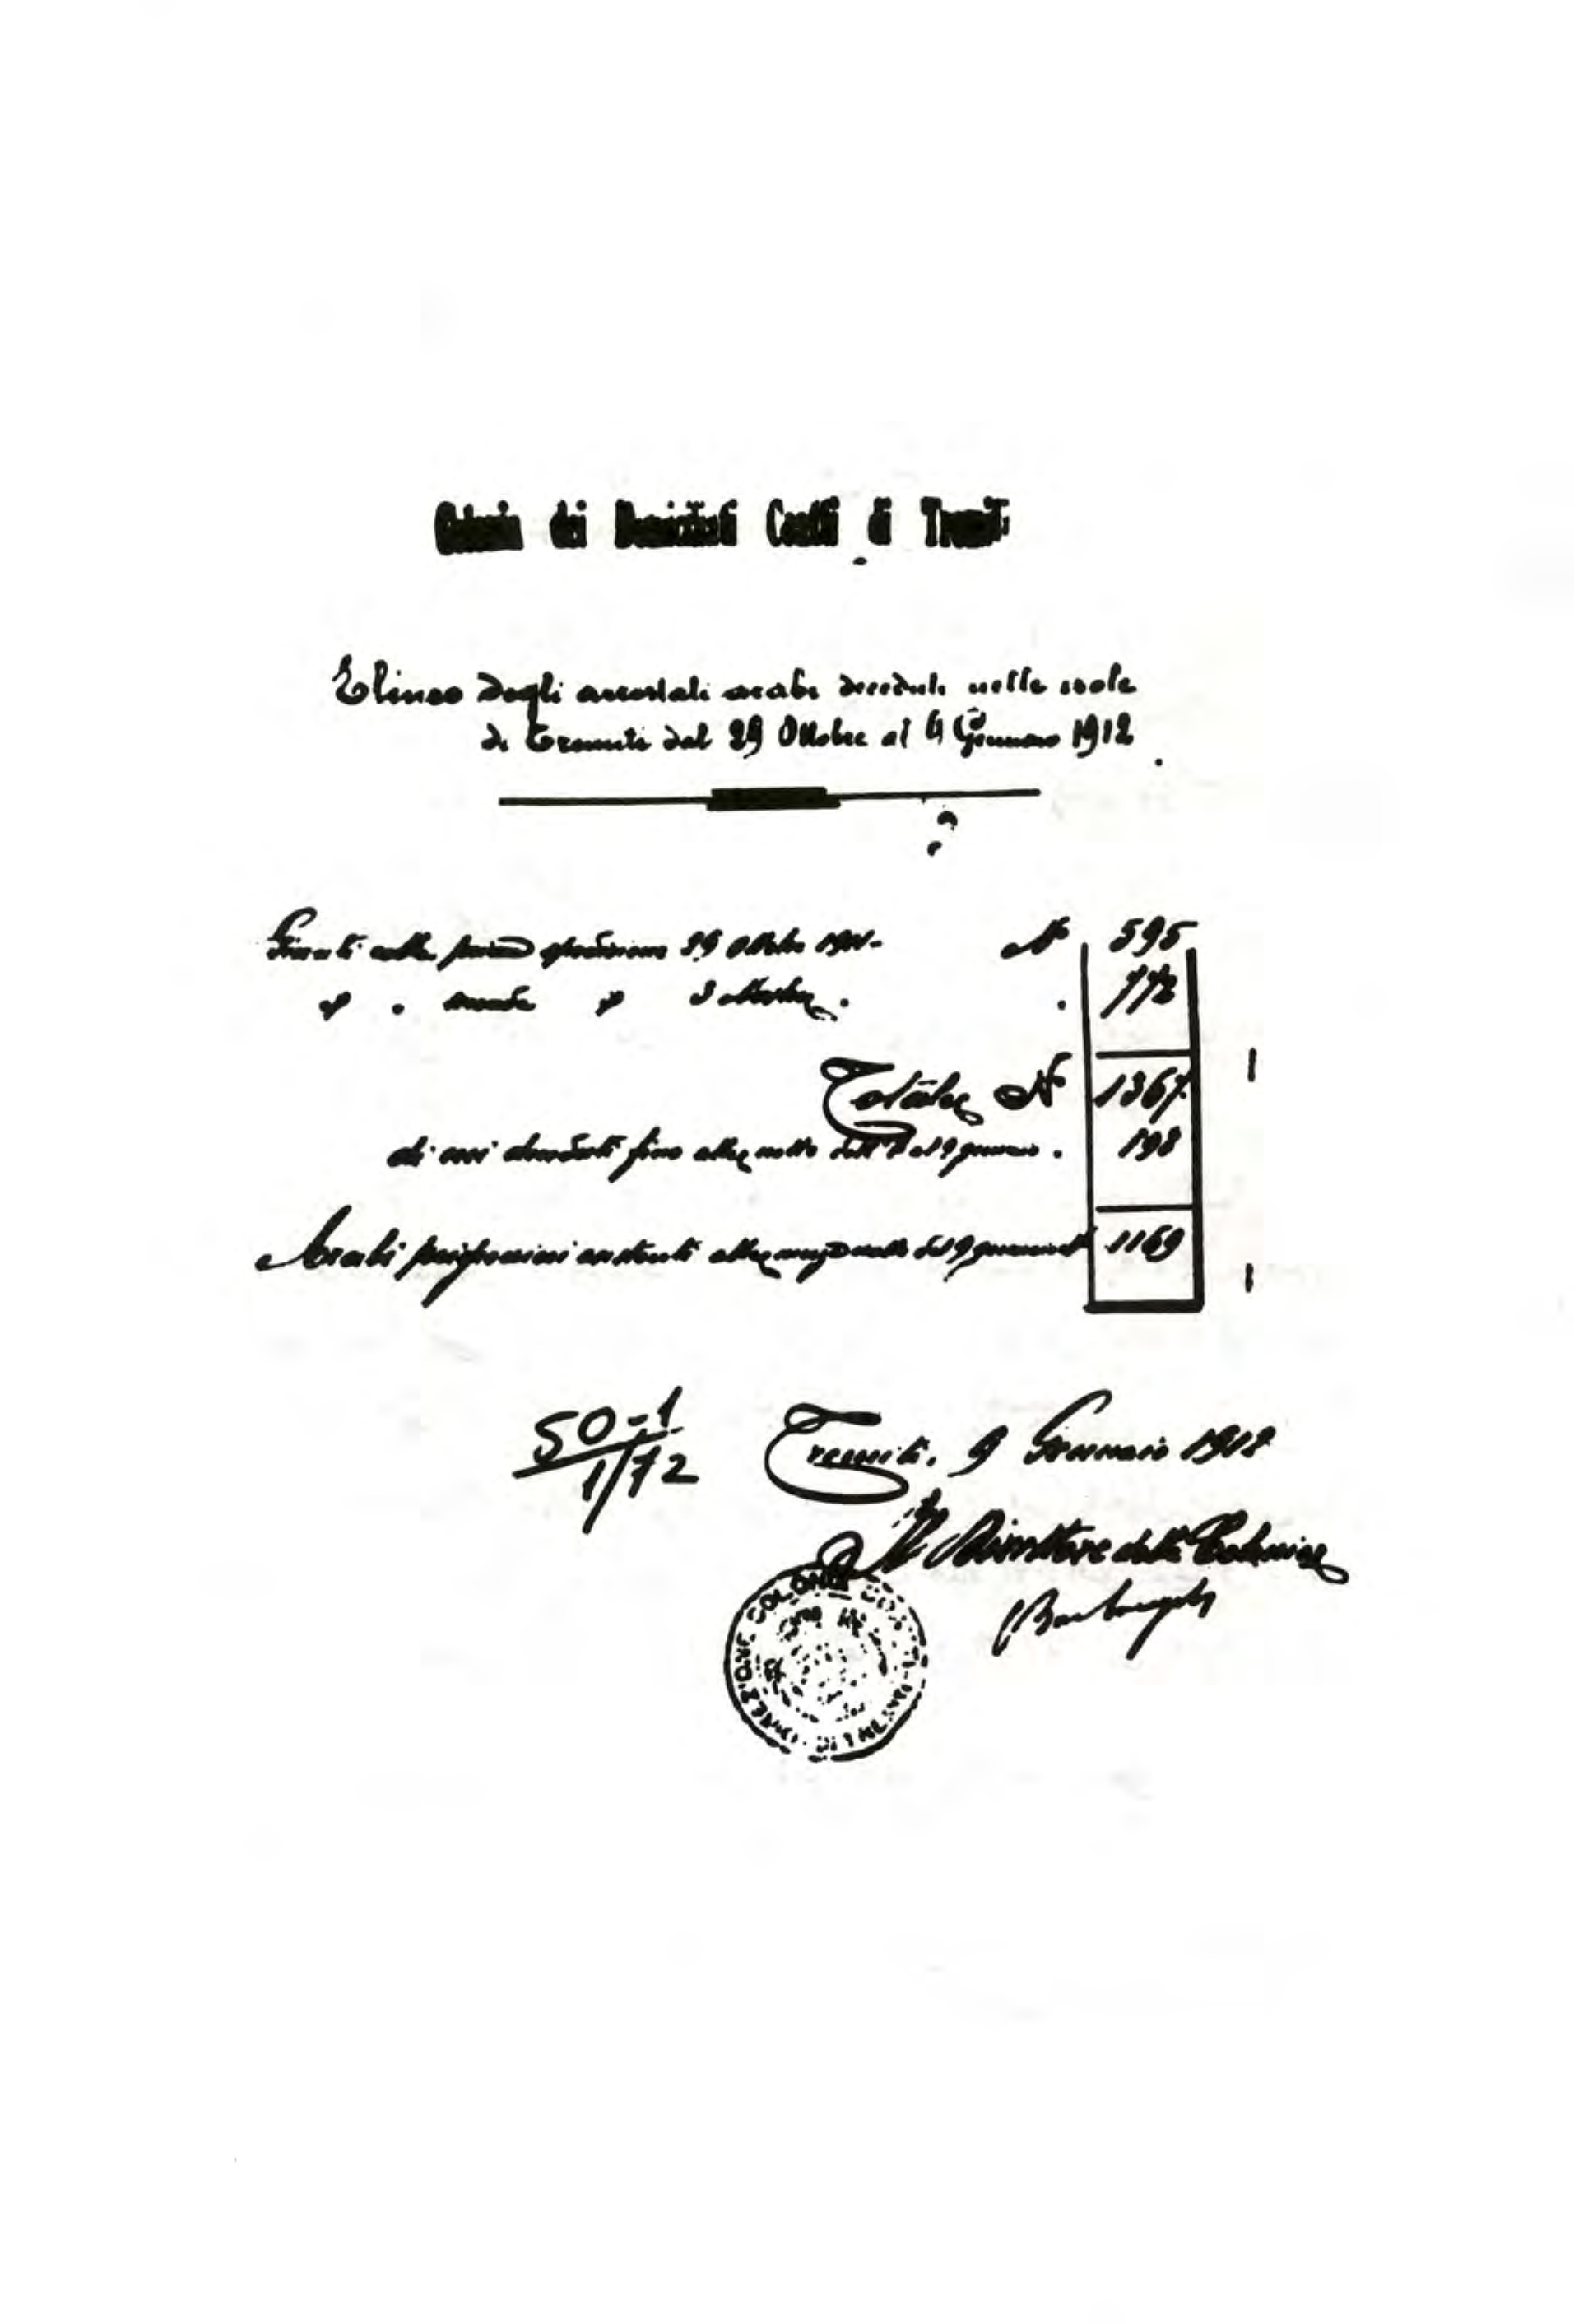 Colonia dei Domiciliati Coatti di Tremiti
Elenco degli arrestati arabi deceduti nelle isole
di Tremiti dal 29 Ottobre al 9 Gennaio 1912
Giunti colla prima spedizione 29 Ottobre 1911- N° 595
" . seconda " 3 . . 772
Totale N° 1367
di essi deceduti fino alla notte dell'8 al 9 gennaio . 198
Arabi prigionieri esistenti alla mezzanotte del 9 gennaio N° 1169
50-1
1/72
Tremiti. 9 Gennaio 1912
Il Direttore della Colonia
DIREZIONE COLONIA DI TREMITI